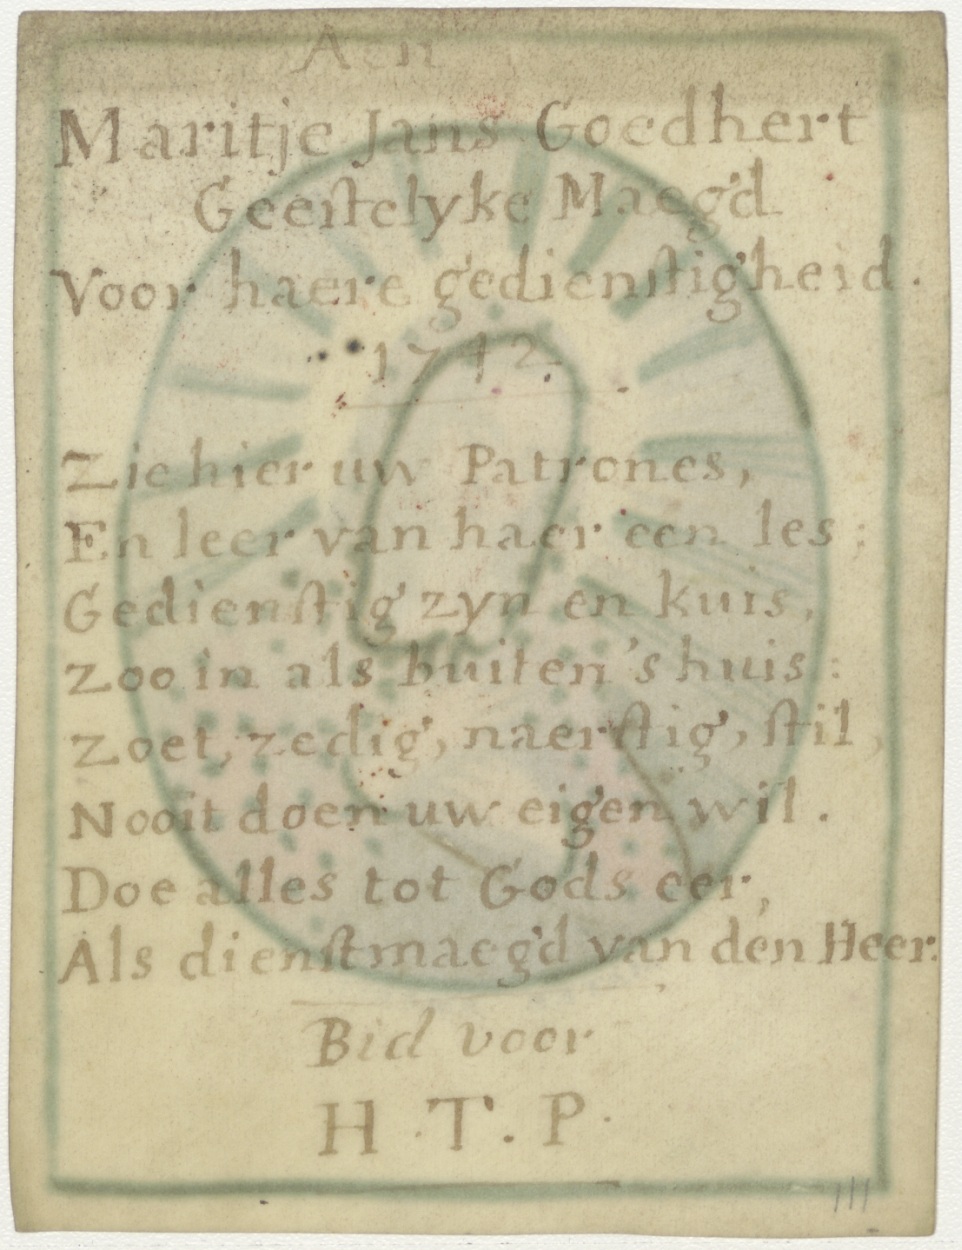 Aen
Maritje Jans Goedhert
Geeſtelyke Maegd
Voor haere gedienſtigheid.
1742.
Zie hier uw Patrones,
En leer van haer een les;
Gedienſtig zyn en kuis,
Zoo in als buiten 's huis:
Zoet, zedig, naerſtig, ſtil,
Nooit doen uw eigen wil.
Doe alles tot Gods eer,
Als dienſtmaegd van den Heer.
Bid voor
H.T.P.